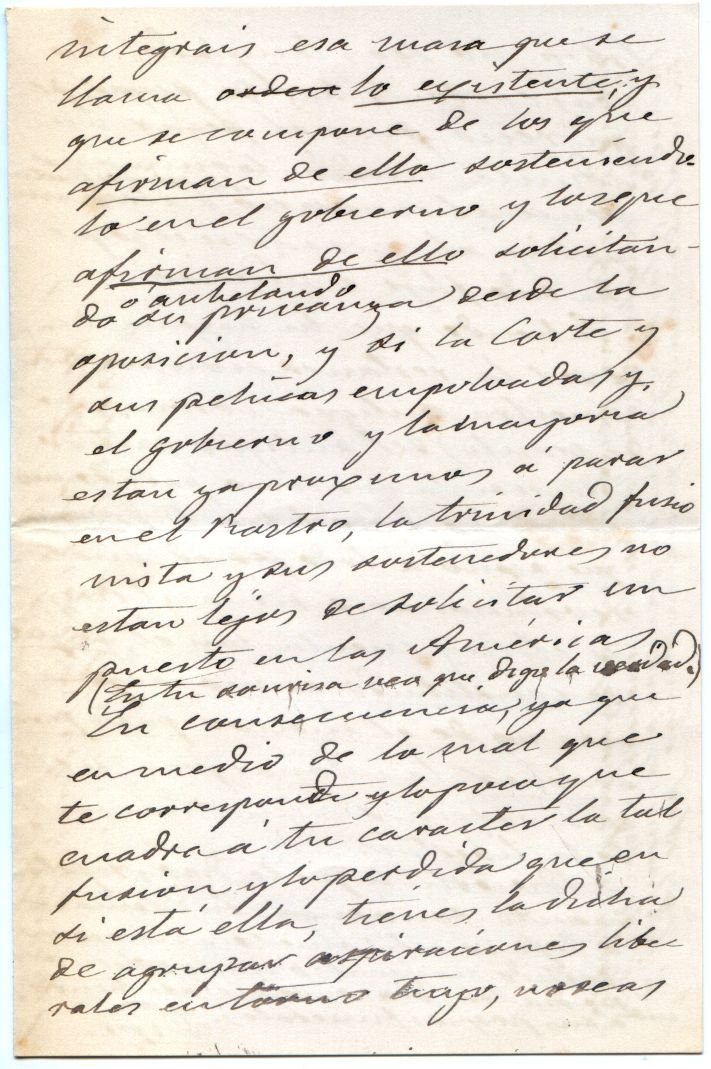 integrais esa masa que se
llama orden lo existente, y
que se compone de los que
afirman de ello sosteniendo-
lo en el gobierno y los que
afirman de ello solicitan-
ó anhelando
do su privanza desde la
oposicion, y si la Corte y
sus pelucas empolvadas y
el gobierno y la mayoria
estan ya proximos á parar
en el Rastro, la trinidad fusio
nista y sus sostenedores no
estan lejos de solicitar un
puesto en las Américas
(En tu sonrisa veo que digo la verdad.)
En consecuencia, ya que
en medio de lo mal que
te corresponde y lo poco que
cuadra á tu caracter la tal
fusion y lo perdida que en
si está ella, tienes la dicha
de agrupar aspiraciones libe
rales en torno tuyo, no seas